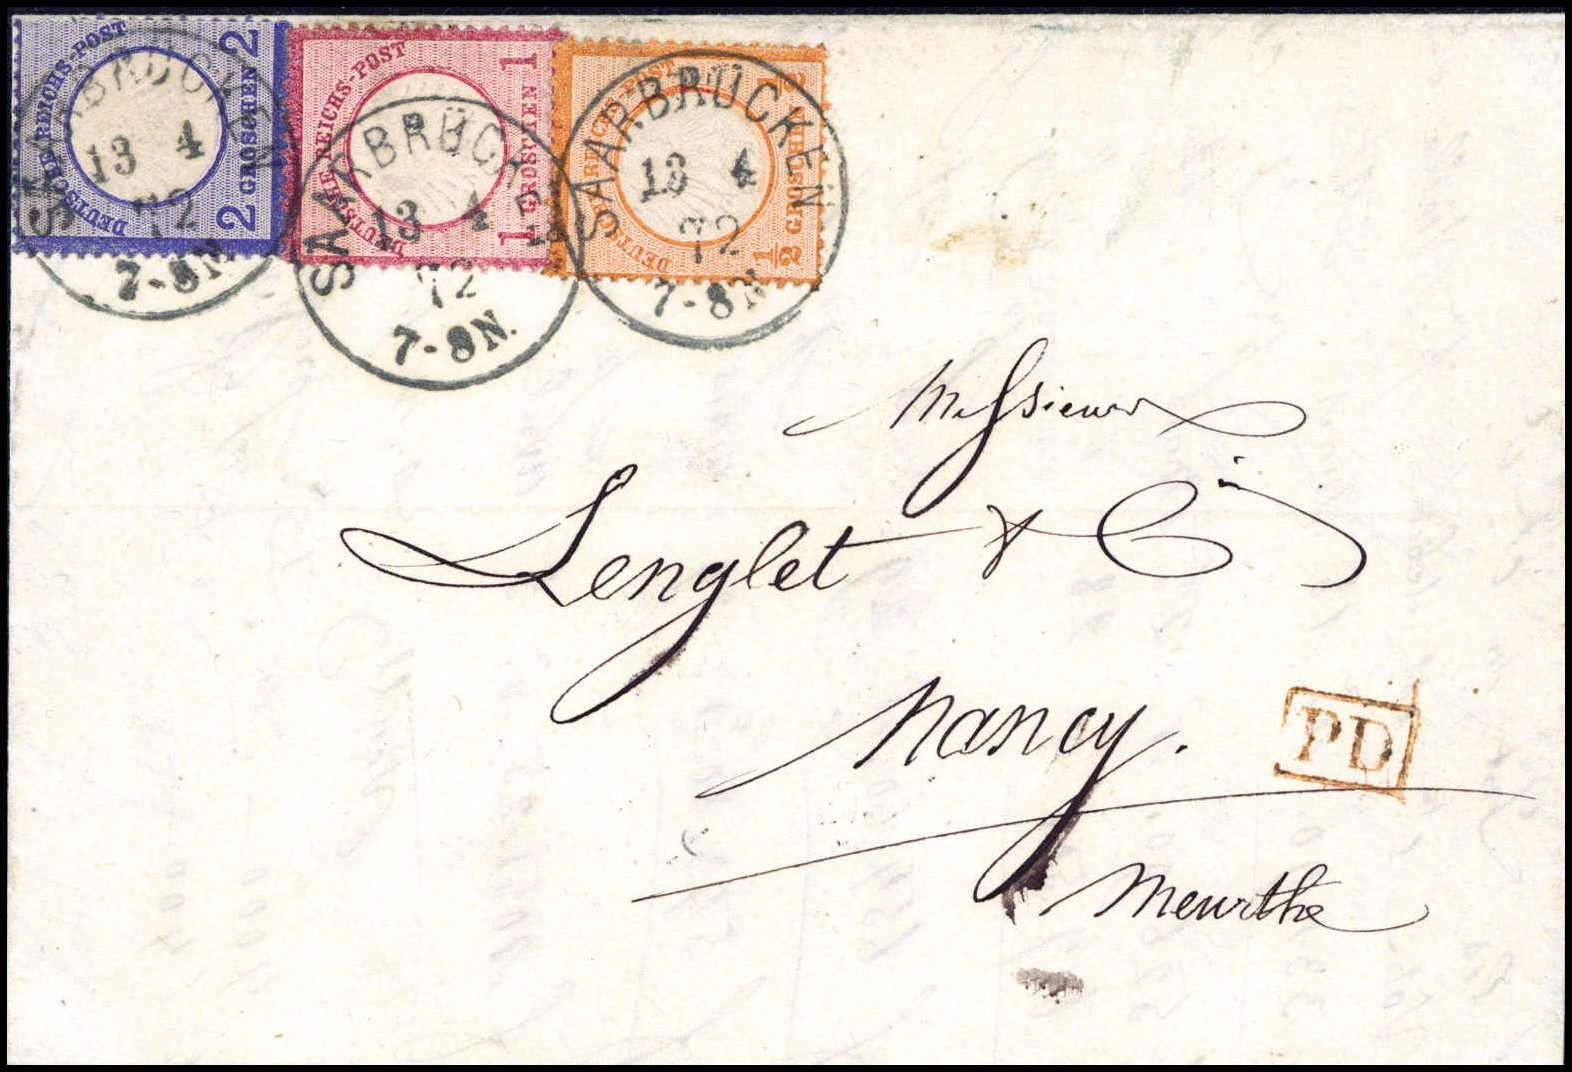 DEUTSCHE REICHS-POST
2 GROSCHEN 2
SAARBRÜCKEN
13 4
72
7-8N.
DEUTSCHE REICHS-POST
1 GROSCHEN 1
SAARBRÜCKEN
13 4
72
7-8N.
DEUTSCHE REICHS-POST
1/2 GROSCHEN 1/2
SAARBRÜCKEN
13 4
72
7-8N
Messieurs
Lenglet & Cie
Nancy.
PD
Meurthe